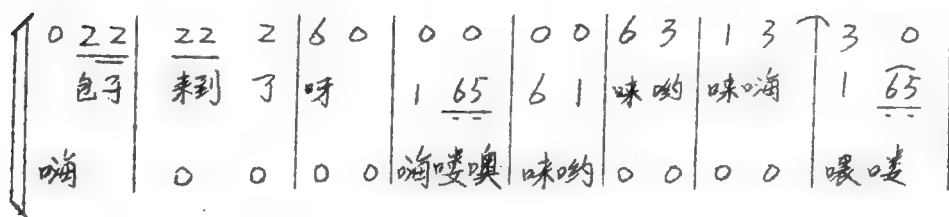 0 22 | 22 2 | 6 0 | 0 0 | 0 0 | 6 3 | 1 3 | 3 0
包子 来到 了 呀 1 65 6 1 咪 哟 咪 嗨 1 65
嗨 0 0 0 0 嗨 喽 噢 咪 哟 0 0 0 0 喂 喽